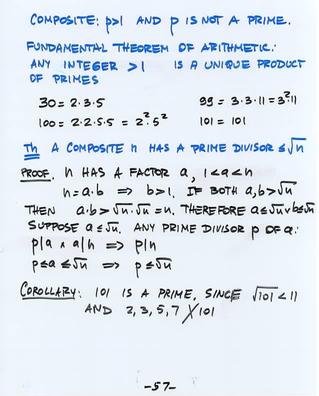 COMPOSITE: p>1 AND p IS NOT A PRIME.
FUNDAMENTAL THEOREM OF ARITHMETIC:
ANY INTEGER >1 IS A UNIQUE PRODUCT
OF PRIMES
30 = 2·3·5 99 = 3·3·11 = 3²·11
100 = 2·2·5·5 = 2²·5² 101 = 101
Th A COMPOSITE n HAS A PRIME DIVISOR ≤ √n
PROOF. n HAS A FACTOR a, 1<a<n
n=a·b ⇒ b>1. IF BOTH a,b>√n
THEN a·b>√n·√n=n. THEREFORE a≤√n∨b≤√n
SUPPOSE a≤√n. ANY PRIME DIVISOR p OF a:
p|a ∧ a|n ⇒ p|n
p≤a≤√n ⇒ p≤√n
COROLLARY: 101 IS A PRIME, SINCE √101 < 11
AND 2,3,5,7 ∤ 101
-57-